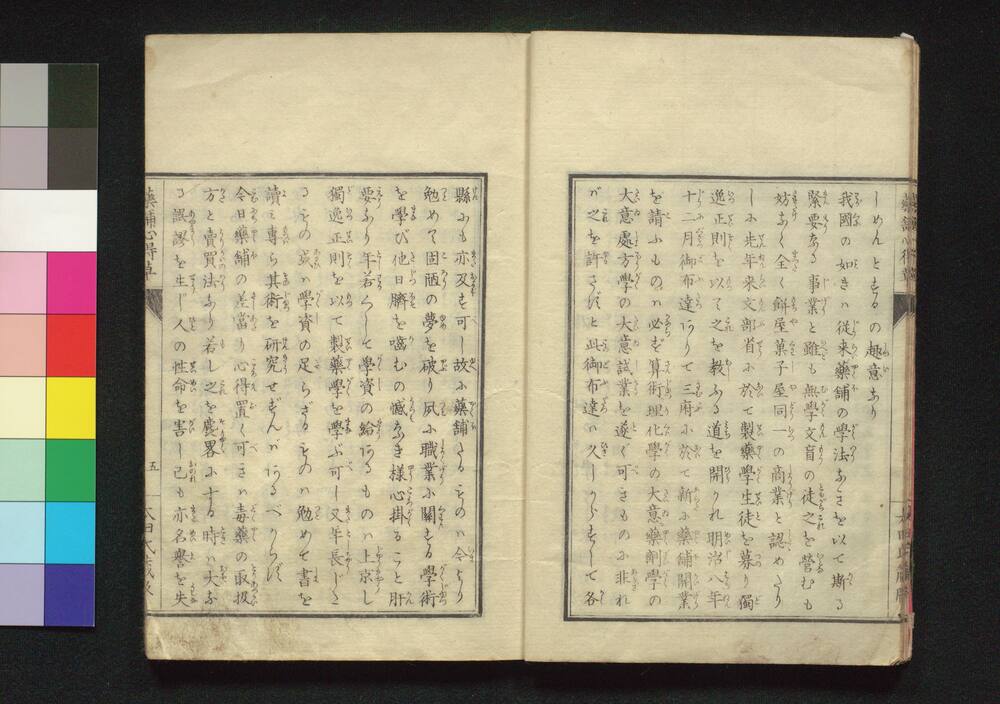 しめんとするの趣意あり
我國の如きハ従来藥舗の學法なきを以て斯る
緊要なる事業と雖も無學文盲の徒之を營むも
妨なく全く餅屋菓子屋同一の商業と認めたり
しに先年来文部省に於て製藥學生徒を募り獨
逸正則を以て之を教ふる道を開かれ明治八年
十二月御布達ありて三府に於て新に藥舗開業
を請ふものハ必ず算術理化學の大意藥劑學の
大意處方學の大意試業を遂く可きものに非れ
が之を許さずと此御布達ハ久しからずして各
縣にも亦及す可し故に藥舗たるものハ今より
勉めて固陋の夢を破り夙に職業に關する學術
を學び他日臍を噬むの憾なき様心掛ること肝
要なり年若くして學資の給あるものハ上京し
獨逸正則を以て製藥學を學ぶ可し又年長じた
るもの或ハ學資の足らざるものハ勉めて書を
讀ミ専ら其術を研究せずんバあるべからず
今日藥舗の差當り心得置く可きハ毒藥の取扱
方と賣買法なり若し之を麁畧にする時ハ大な
る誤謬を生じ人の性命を害し己も亦名譽を失
藥舗心得草
五